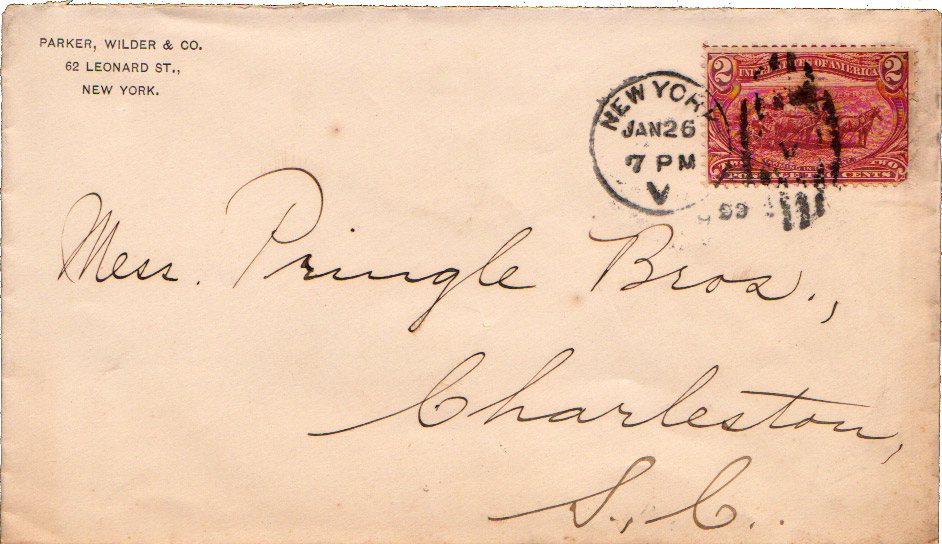 PARKER, WILDER & CO.
62 LEONARD ST.,
NEW YORK.
NEW YORK
JAN 26
7 PM
V
99
2 2
UNITED STATES OF AMERICA
TWO TWO
POSTAGE TWO CENTS
V
Mess. Pringle Bros.,
Charleston,
S., C..